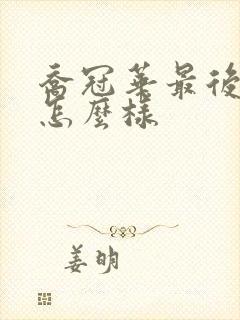 喬冠華最後
怎麼樣
姜明